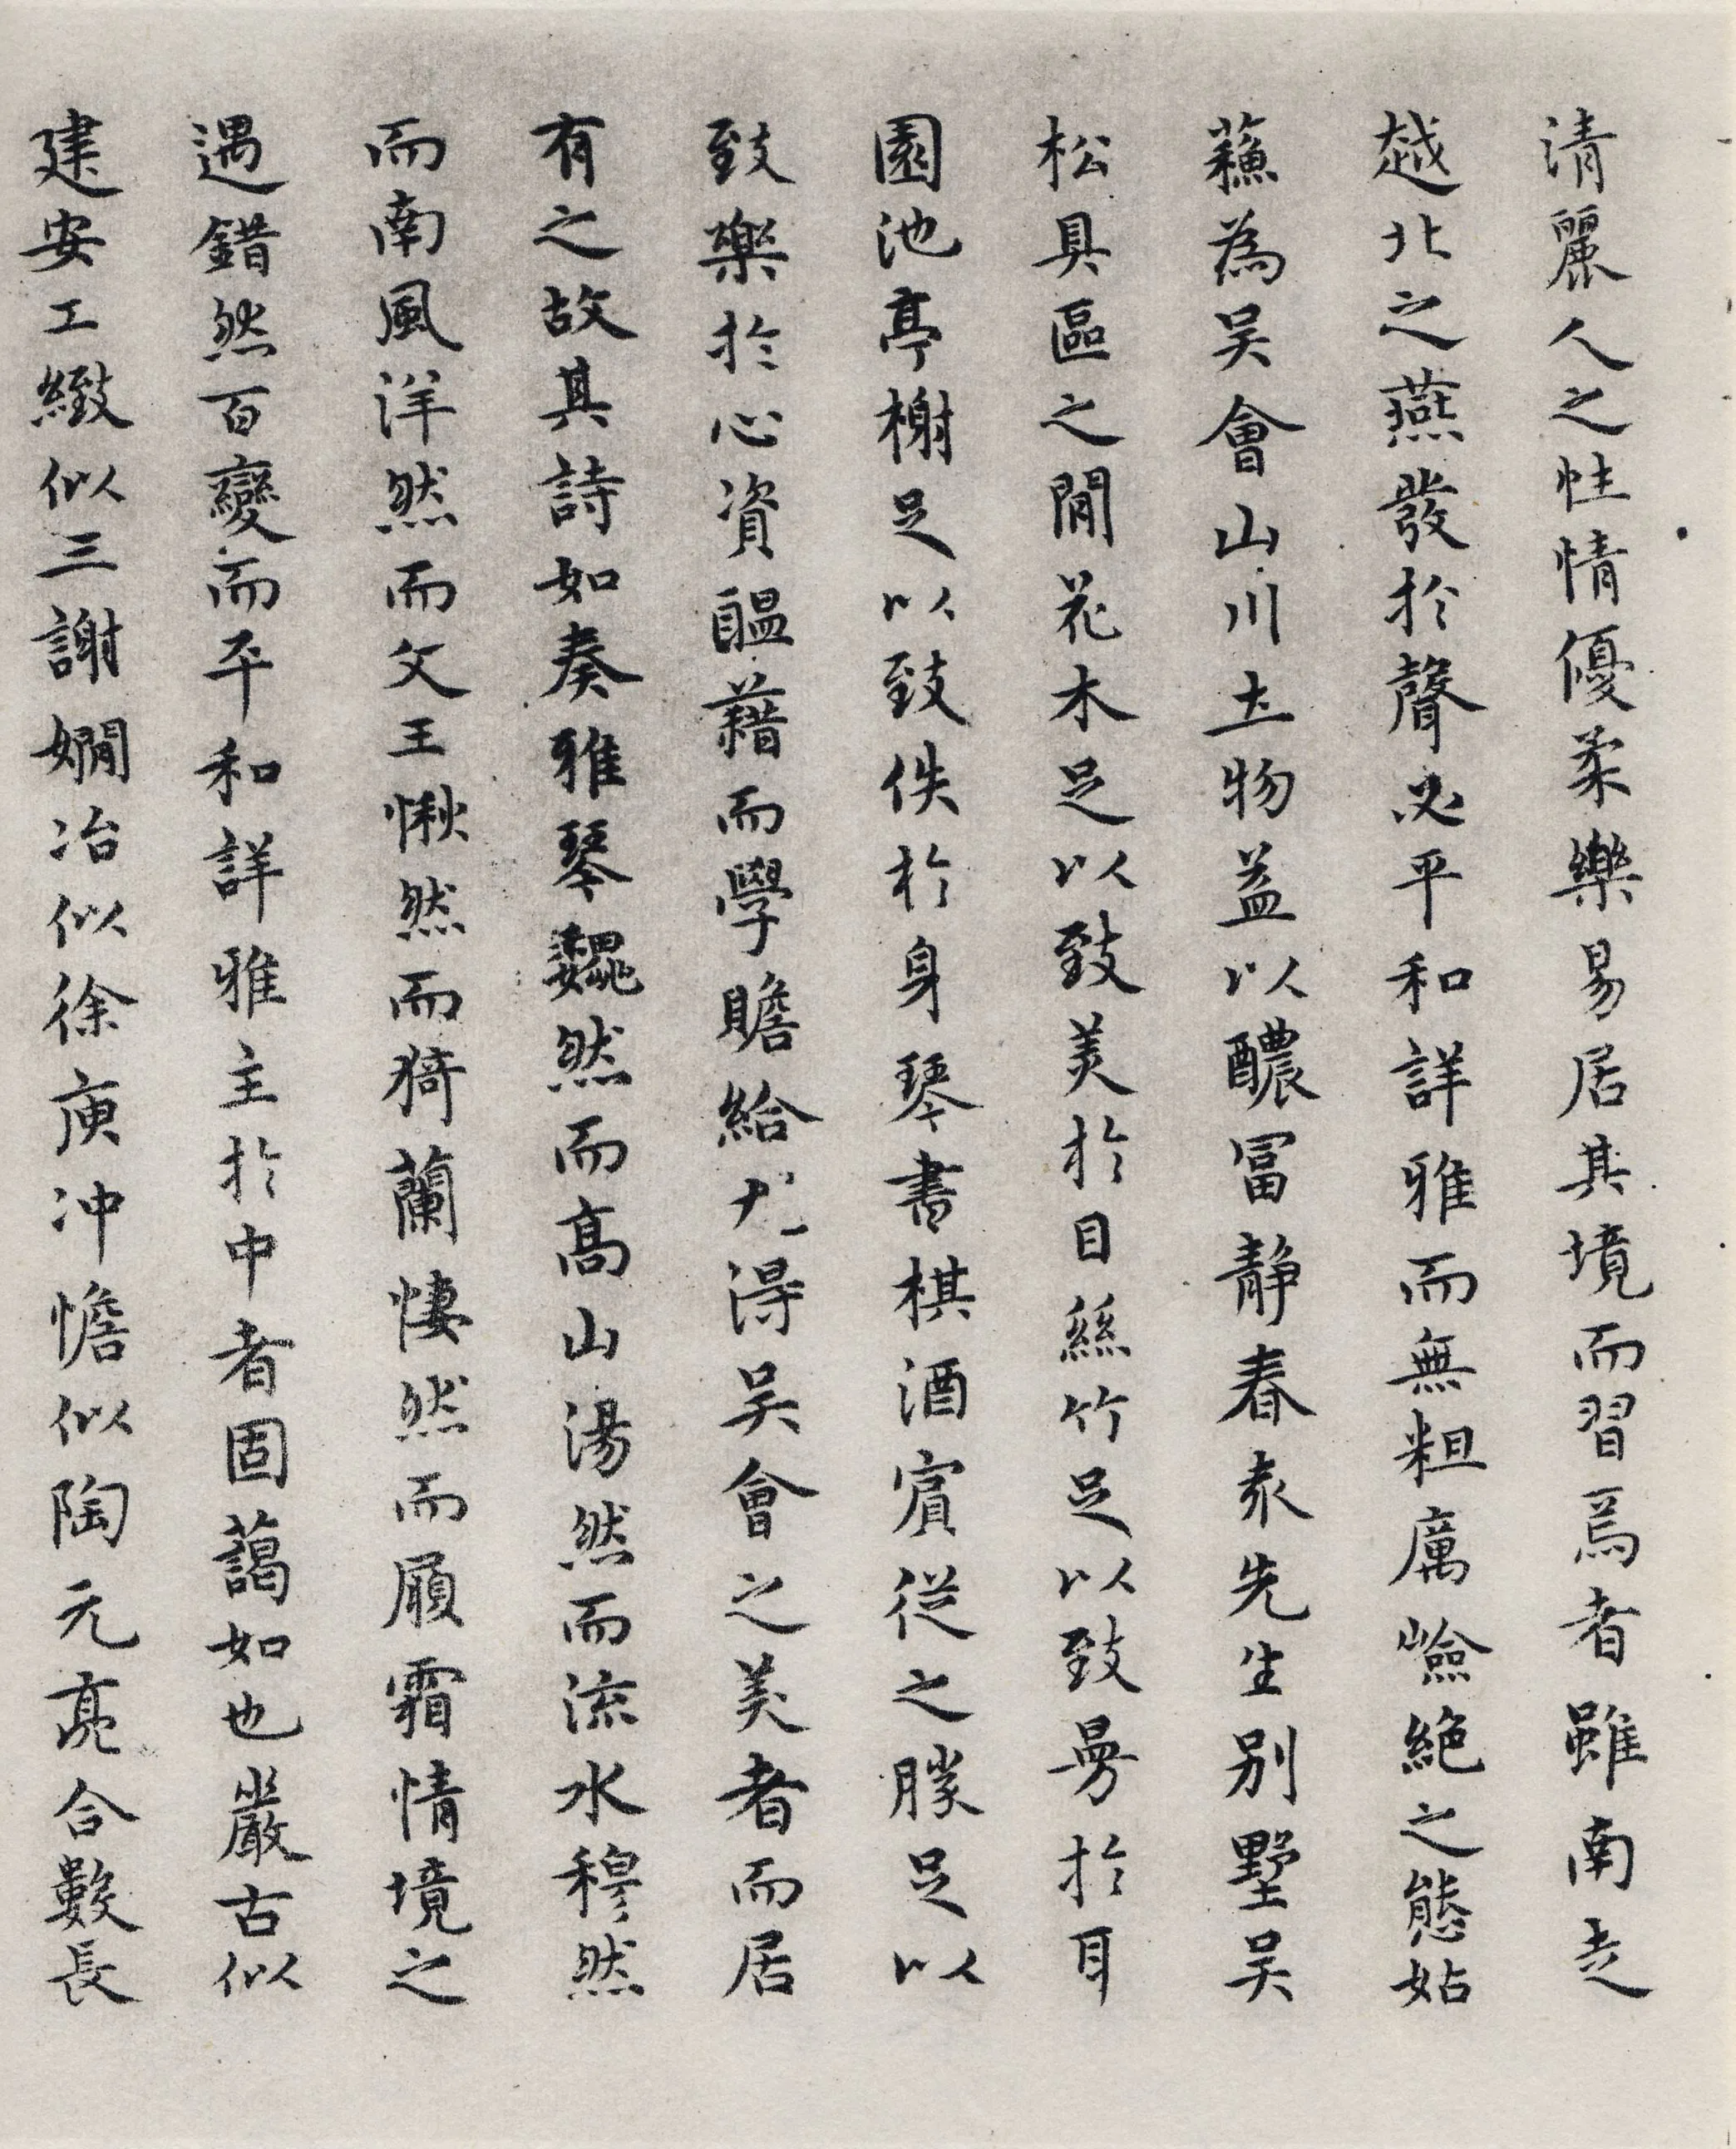 清麗人之性情優柔樂易居其境而習焉者雖南走
越北之燕發於聲必平和詳雅而無粗厲嶮絕之態姑
蘓為吴會山川土物益以醲冨静春袁先生别墅吴
松具區之閒花木足以致美於目絲竹足以致曼於耳
園池亭榭足以致佚於身琴書棋酒賔從之勝足以
致樂於心資醞藉而學贍給尤得吴會之美者而居
有之故其詩如奏雅琴巍然而髙山湯然而流水穆然
而南風洋然而文王愀然而猗蘭悽然而履霜情境之
遇錯然百變而平和詳雅主於中者固藹如也嚴古似
建安工緻似三謝嫺冶似徐庾冲憺似陶元亮合數長